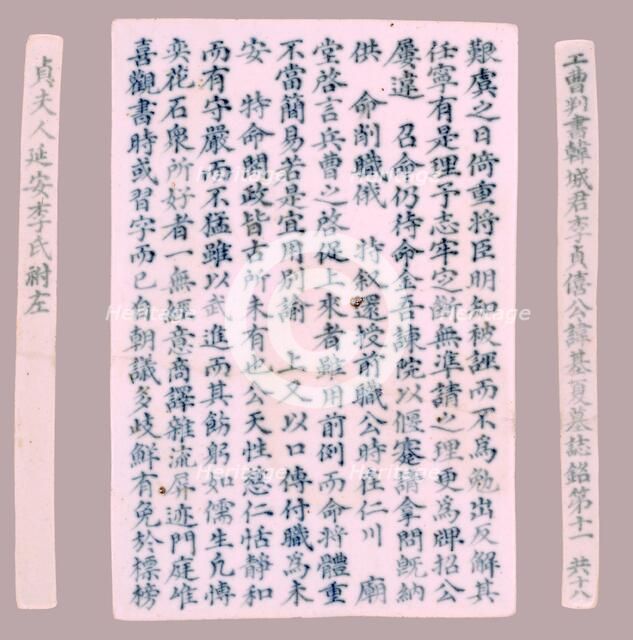 工曹判書韓城君李貞僖公諱基夏墓誌銘第十一 共十八
艱虞之日倚重將臣明知被誣而不爲勉出反解其
任寧有是理予志牢定斷無準請之理更爲牌招公
屢違 召命仍待命金吾諫院以偃蹇請拿問旣納
供 命削職俄 特叙還授前職公時在仁川 廟
堂啓言兵曹之啓從上來者雖用前例而命將體重
不當簡易若是宜用別諭 上又以口傳付職爲未
安 特命開政皆古所未有也公天性慈仁恬靜和
而有守嚴而不猛雖以武進而其飭躬如儒生凡博
奕花石衆所好者一無經意商譯雜流屛迹門庭唯
喜觀書時或習字而已自朝議多歧鮮有免於標榜
貞夫人延安李氏祔左
Heritage
Heritage
Heritage
Heritage
Heritage
Heritage